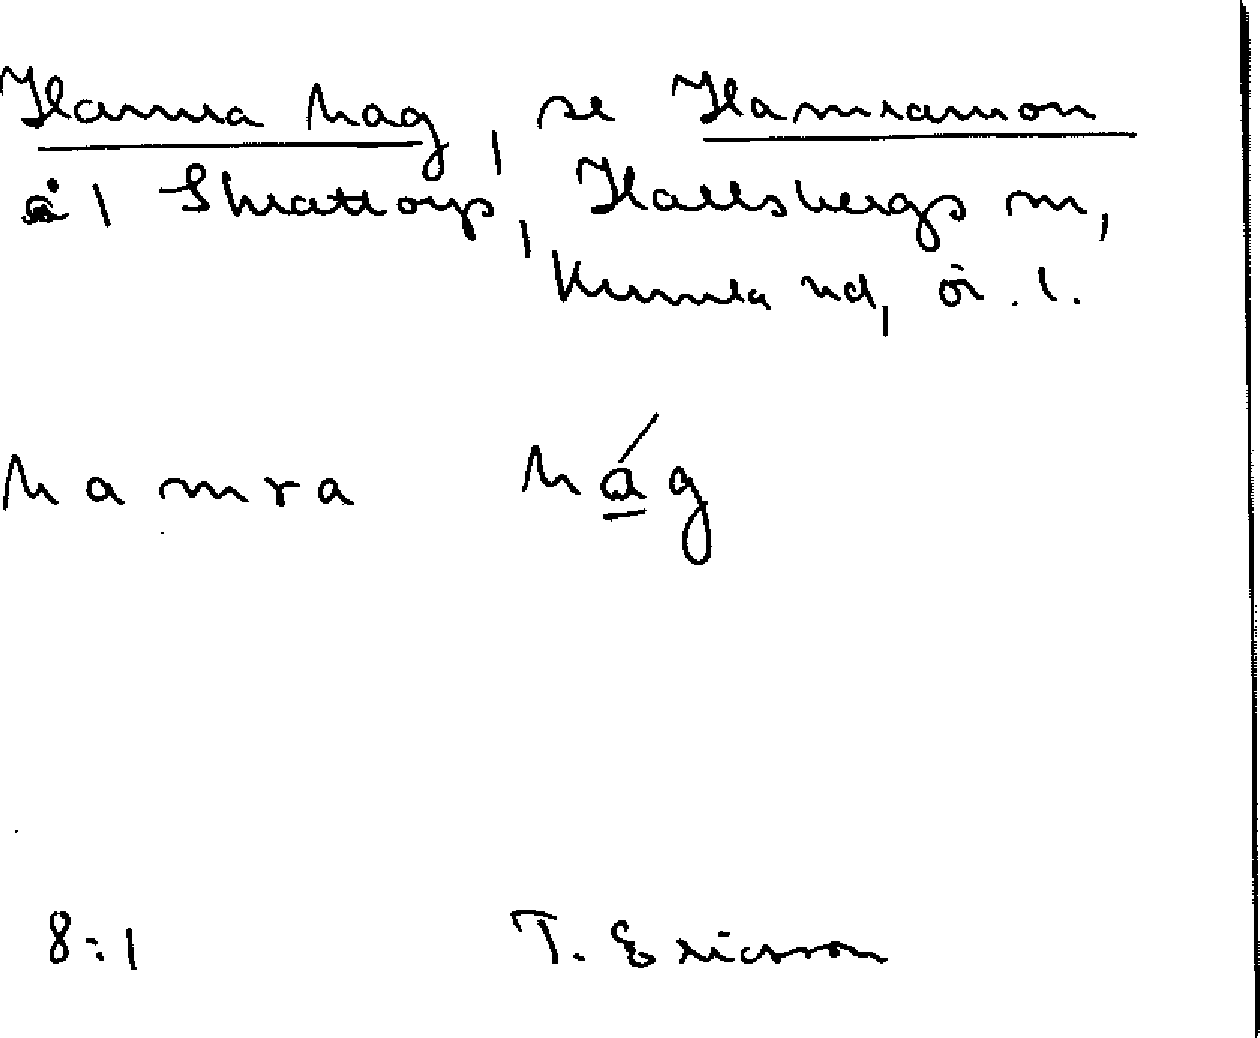 Hamra hag, se Hamramon
å, Skrattorp, Hallsbergs sn,
Kumla hd, ör. l.
hamra hág
8:1 T. Ericsson